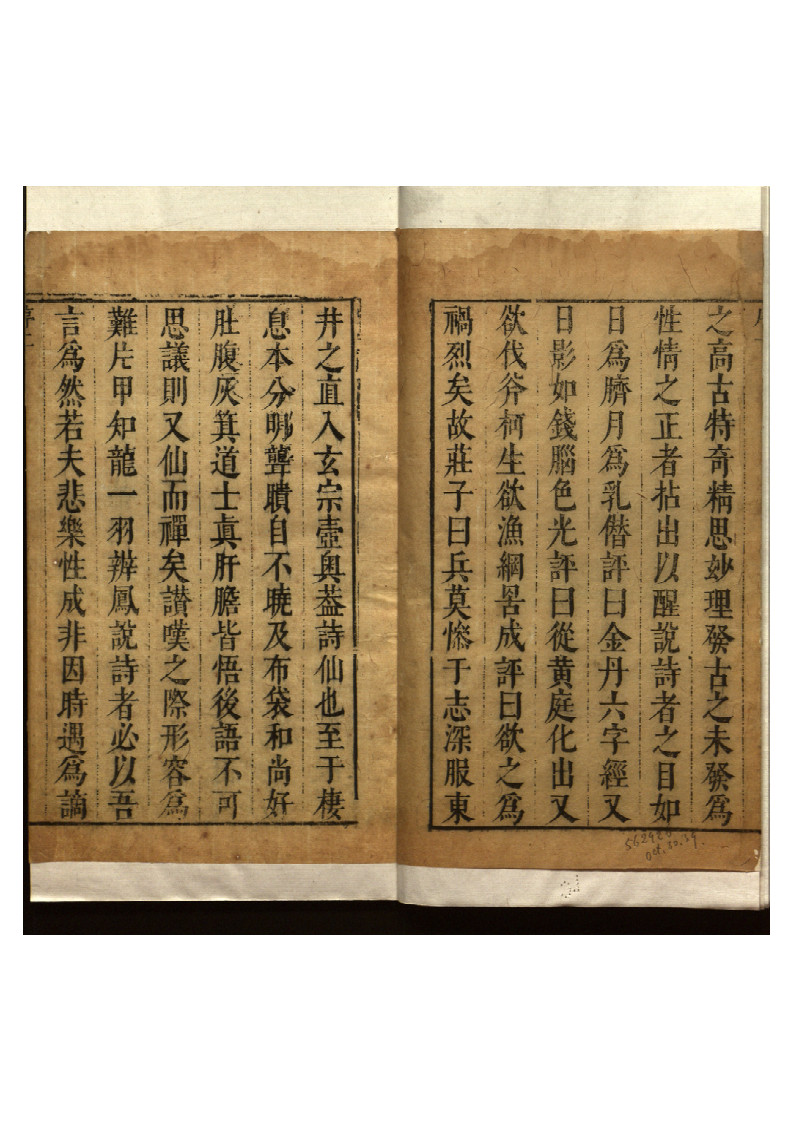 之高古特奇精思妙理發古之未發爲
性情之正者拈出以醒說詩者之目如
日爲臍月爲乳僭評曰金丹六字經又
日影如錢腦色光評曰從黄庭化出又
欲伐斧柯生欲漁網罟成評曰欲之爲
禍烈矣故莊子曰兵莫憯于志深服東
井之直入玄宗壺奥葢詩仙也至于棲
息本分明聾聵自不曉及布袋和尚好
肚腹灰箕道士眞肝膽皆悟後語不可
思議則又仙而禪矣讃嘆之際形容爲
難片甲知龍一羽辨鳳說詩者必以吾
言爲然若夫悲樂性成非因時遇爲謫
562926
Oct. 30. 39.